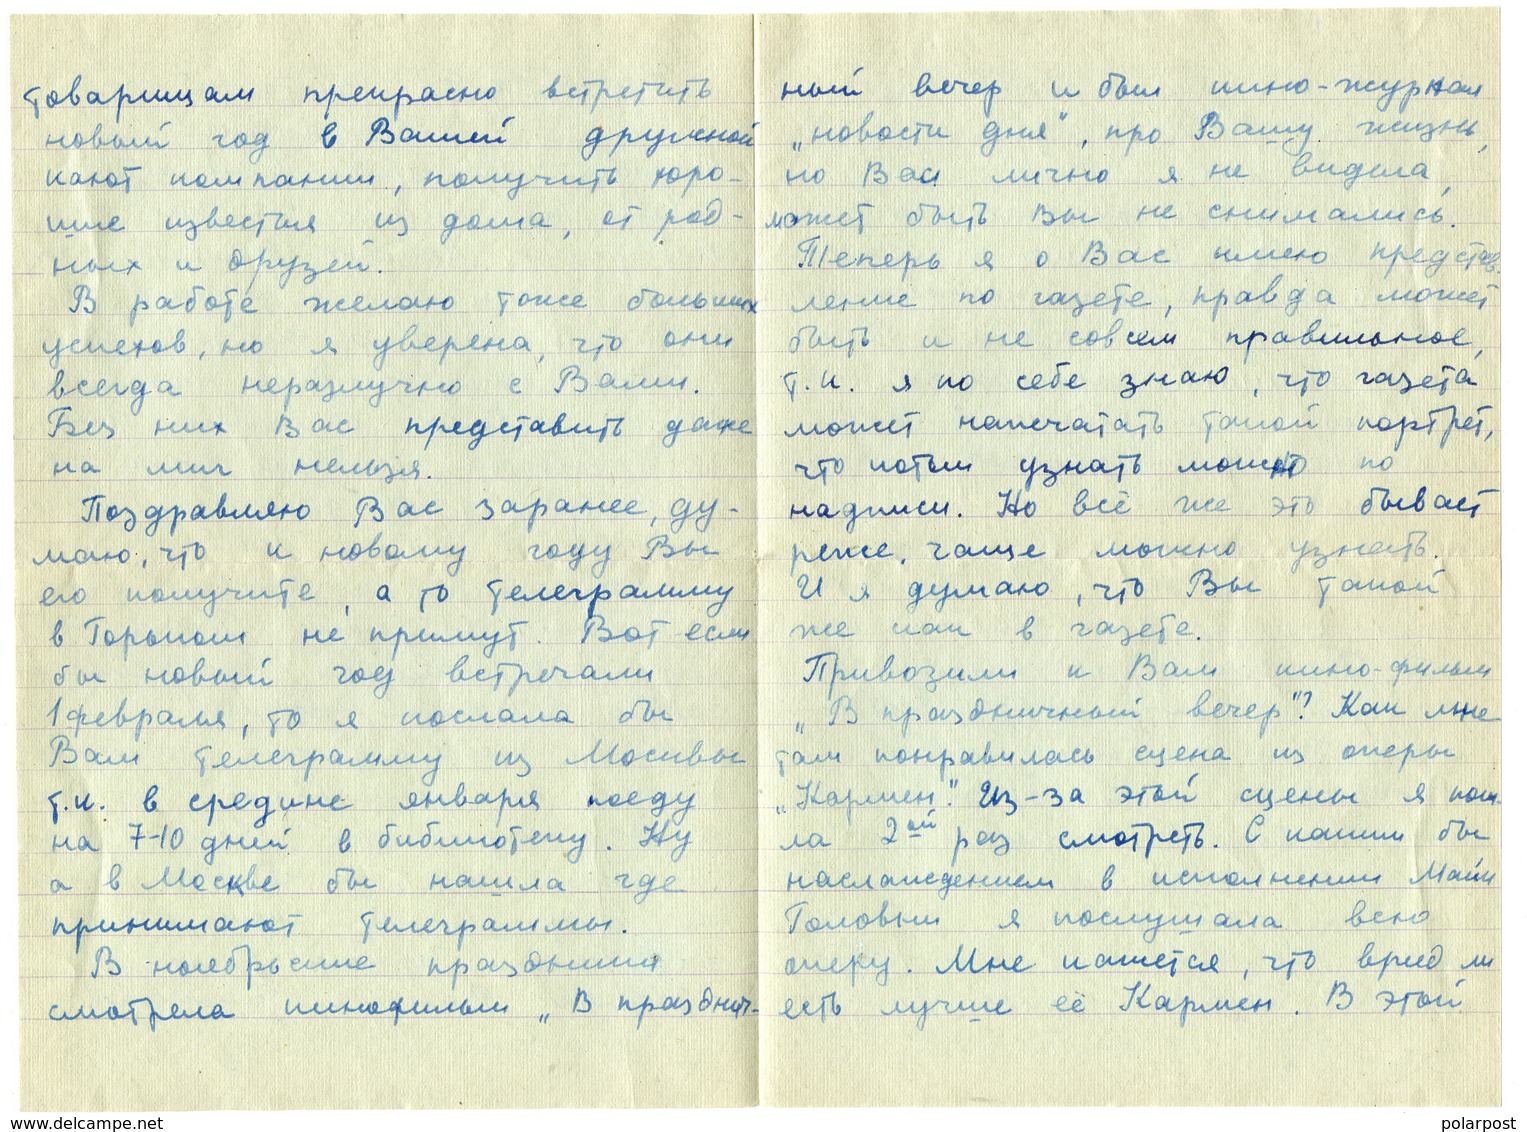 товарищам прекрасно встретить
новый год в Вашей дружной
кают компании, получить хоро-
шие известия из дома, от род-
ных и друзей.
В работе желаю тоже больших
успехов, но я уверена, что они
всегда неразлучно с Вами.
Без них Вас представить даже
на миг нельзя.
Поздравляю Вас заранее, ду-
маю, что к новому году Вы
его получите, а то телеграмму
в Горьком не примут. Вот если
бы новый год встречали
1 февраля, то я послала бы
Вам телеграмму из Москвы
т.к. в средине января поеду
на 7-10 дней в библиотеку. Ну
а в Москве бы нашла где
принимают телеграммы.
В ноябрьские праздники
смотрела кинофильм „В празднич-
ный вечер и был кино-журнал
„новости дня", про Вашу жизнь,
но Вас лично я не видела,
может быть Вы не снимались.
Теперь я о Вас имею представ-
ление по газете, правда может
быть и не совсем правильное,
т.к. я по себе знаю, что газета
может напечатать такой портрет,
что потом узнать можно по
надписи. Но всё же это бывает
реже, чаще можно узнать.
И я думаю, что Вы такой
же как в газете.
Привозили к Вам кино-фильм
„В праздничный вечер"? Как мне
там понравилась сцена из оперы
„Кармен". Из-за этой сцены я пош-
ла 2ой раз смотреть. С каким бы
наслаждением в исполнении Майи
Головни я послушала всю
оперу. Мне кажется, что вряд ли
есть лучше её Кармен. В этой
www.delcampe.net
polarpost